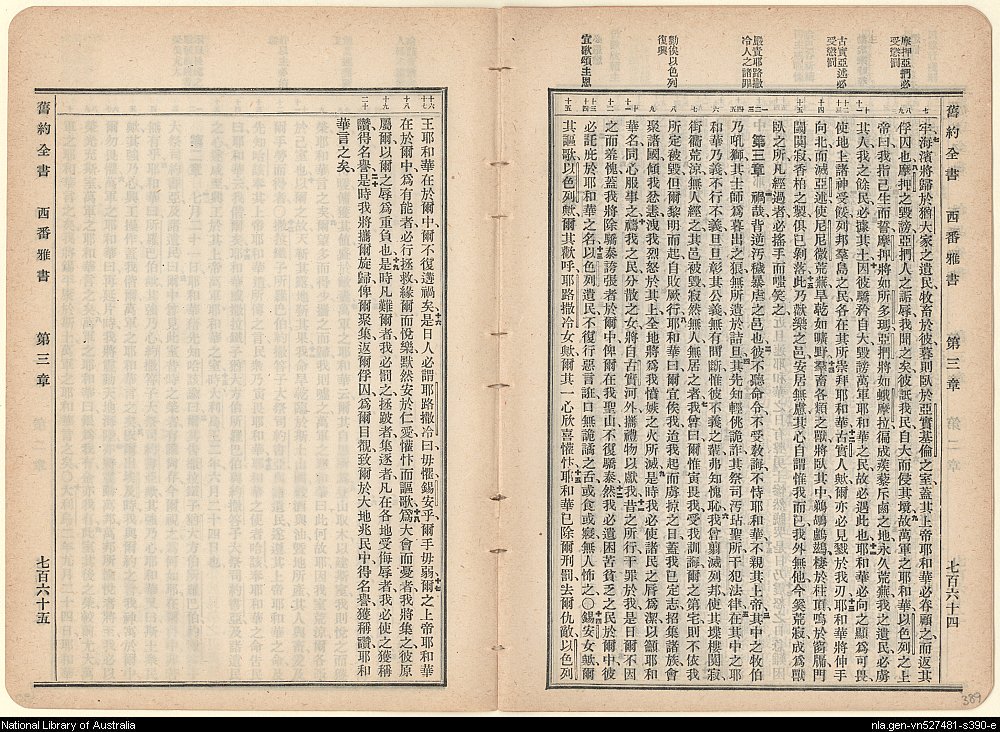 舊約全書 西番雅書 第三章 七百六十四
摩押亞捫必
受懲罰
古實亞述必
受懲罰
嚴責耶路撒
冷人之諸罪
勸俟以色列
復興
宜歌頌主恩
牢海濱將歸於猶大家之遺民牧畜於彼暮則臥於亞實基倫之室蓋其上帝耶和華必眷顧之而返其
俘囚也摩押之毀謗亞捫人之詬辱我聞之矣彼詆我民自大而侵其境故萬軍之耶和華以色列之上
帝曰我指己生而誓摩押將如所多瑪亞捫將如蛾摩拉徧成蒺藜斥鹵之地永久荒蕪我之遺民必虜
其人我之餘民必據其土因彼驕矜自大毀謗萬軍耶和華之民故必遇此也耶和華必向之顯為可畏
使地上諸神受餒列邦羣島之民各在其所崇拜耶和華古實人歟爾亦必見戮於我刃耶和華將伸手
向北而滅亞述使尼尼微荒蕪旱乾如曠野羣畜各類之獸將臥其中鵜鶘鸕鷀棲於柱頂鳴於窗牖門
閾闃寂香柏之製俱已剝落此乃歡樂之邑安居無慮其心自謂惟我而已我外無他今奚荒寂成為獸
臥之所凡經過者必搖手而嗤笑之
第三章 禍哉背逆污穢暴虐之邑也彼不聽命令不受教誨不恃耶和華不親其上帝其中之牧伯
乃吼獅其士師為暮出之狼無所遺於詰旦其先知輕佻詭詐其祭司污玷聖所干犯法律在其中之耶
和華乃義不行不義旦旦彰其公義無有間斷惟彼不義之輩弗知愧恥我曾翦滅列邦使其堞樓闃寂
街衢荒涼無人經之其邑被毀寂然無人無居之者我曾曰爾惟寅畏我受我訓誨爾之第宅則不依我
所定被毀但爾黎明而起自敗厥行耶和華曰爾宜俟我迨我起而虜掠之日蓋我已定志招集諸族會
聚諸國傾我忿恚洩我烈怒於其上全地將為我憤嫉之火所滅是時我必使諸民之脣為潔以籲耶和
華名同心服事之禱我之民分散之女將自古實河外攜禮物以獻我昔之所行干罪於我是日爾不因
之而羞愧蓋我將除驕泰誇張者於爾中俾爾在我聖山不復驕泰然我必遺困苦貧乏之民於爾中彼
必託庇於耶和華之名以色列遺民不復行惡言誑口無詭譎之舌或食或寢無人怖之〇錫安女歟爾
其謳歌以色列歟爾其歡呼耶路撒冷女歟爾其一心欣喜懽忭耶和華已除爾刑罰去爾仇敵以色列
王耶和華在於爾中爾不復遘禍矣是日人必謂耶路撒冷曰毋懼錫安乎爾手毋弱爾之上帝耶和華
在於爾中為有能者必行拯救緣爾而悅樂默然安於仁愛懽忭而謳歌為大會而憂者我將集之彼原
屬爾以爾之辱為重負也是時凡難爾者我必罰之拯跛者集逐者凡在各地受侮辱者我必使之獲稱
讚得名譽是時我將攜爾旋歸俾爾聚集返爾俘囚為爾目覩致爾於大地兆民中得名譽獲稱讚耶和
華言之矣
舊約全書 西番雅書 第三章 七百六十五
389
National Library of Australia
nla.gen-vn527481-s390-e